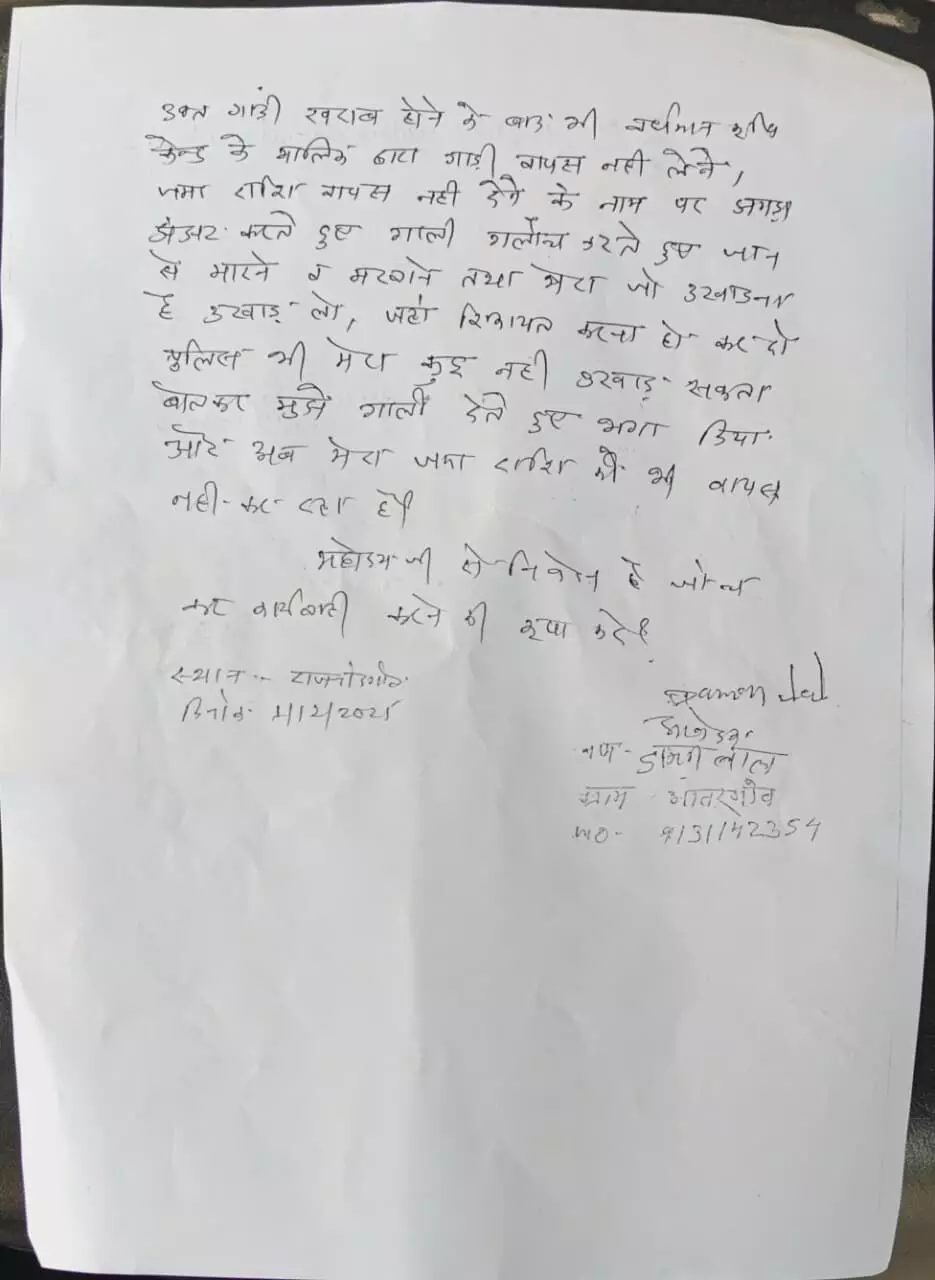 उक्त गाड़ी खराब होने के बाद भी वर्धमान कृषि
केन्द्र के मालिक द्वारा गाड़ी वापस नही लेने,
जमा राशि वापस नही देने के नाम पर झगड़ा
झंझट करते हुए गाली गलौच करते हुए जान
से मारने व मरवाने तथा मेरा जो उखाड़ना
है उखाड़ लो, जहां शिकायत करना हो कर दो
पुलिस भी मेरा कुछ नही उखाड़ सकता
बोलकर मुझे गाली देते हुए भगा दिया
और अब मेरा जमा राशि को भी वापस
नही कर रहा है।
महोदय जी से निवेदन है जांच
कर कार्यवाही करने की कृपा करें।
स्थान :- राजनांदगांव
दिनांक /12/2025
आवेदक
लाल
ग्राम - आतरगांव
mo- 9131142354